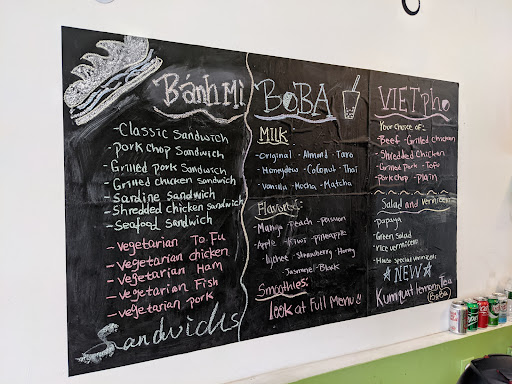 Bánh Mì
-Classic Sandwich
-Pork Chop Sandwich
-Grilled Pork Sandwich
-Grilled chicken Sandwich
-Sardine Sandwich
-Shredded chicken Sandwich
-Seafood Sandwich
-Vegetarian To Fu
-Vegetarian chicken
-Vegetarian Ham
-Vegetarian Fish
-Vegetarian pork
Sandwichs
BOBA
Milk
-Original -Almond -Taro
-Honeydew -Coconut -Thai
-Vanilla -Mocha -Matcha
Flavored:
Mango -Peach -passion
Apple -Kiwi -pineapple
Lychee -Strawberry -Honey
Jasmine -Black
Smoothies:
Look at Full Menu!!
VIET pho
Your choice of:
-Beef -Grilled chicken
-Shredded chicken
-Grilled Pork -Tofu
-Pork chop -Plain
Salad and vermicelli
-Papaya
-Green Salad
-Rice vermicelli
special vermicelli
NEW
Kumquat lemon Tea